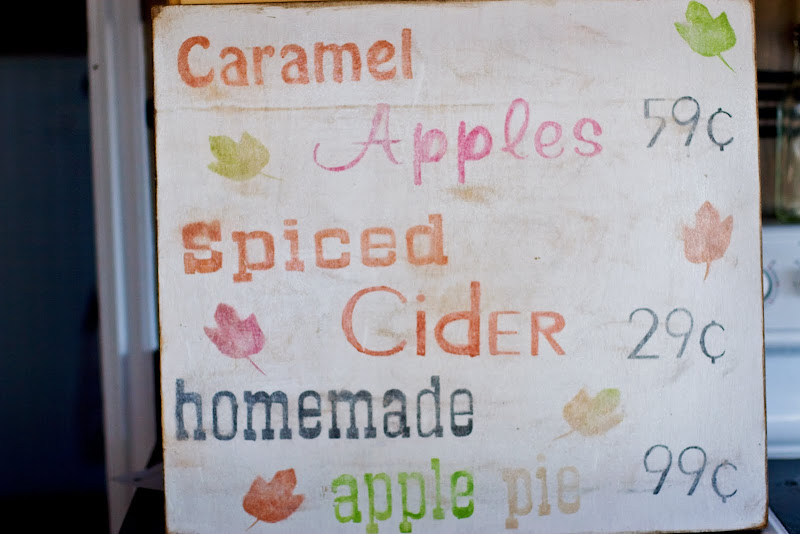 Caramel
Apples 59¢
Spiced
CiDER 29¢
homemade
apple pie 99¢